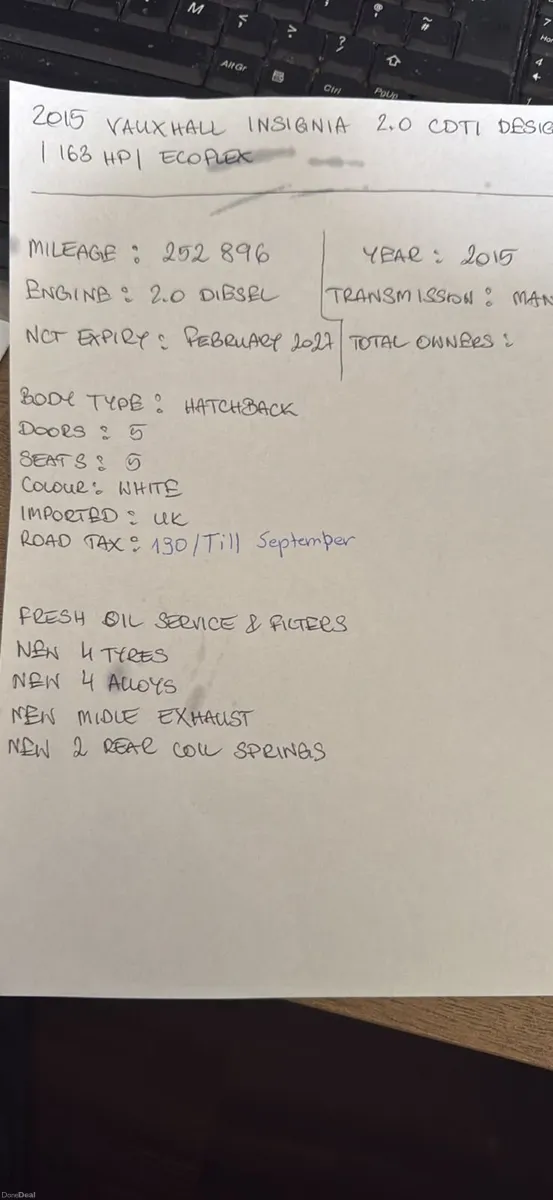 M
AltGr
Ctrl
PgUp
2015 VAUXHALL INSIGNIA 2.0 CDTI DESIG
| 163 HP | ECOFLEX
MILEAGE : 252 896
YEAR : 2015
ENGINE : 2.0 DIESEL
TRANSMISSION : MAN
NCT EXPIRY : FEBRUARY 2027
TOTAL OWNERS :
BODY TYPE : HATCHBACK
DOORS : 5
SEATS : 5
COLOUR : WHITE
IMPORTED : UK
ROAD TAX : 190/Till September
FRESH OIL SERVICE & FILTERS
NEW 4 TYRES
NEW 4 ALLOYS
NEW MIDLE EXHAUST
NEW 2 REAR COIL SPRINGS
DoneDeal